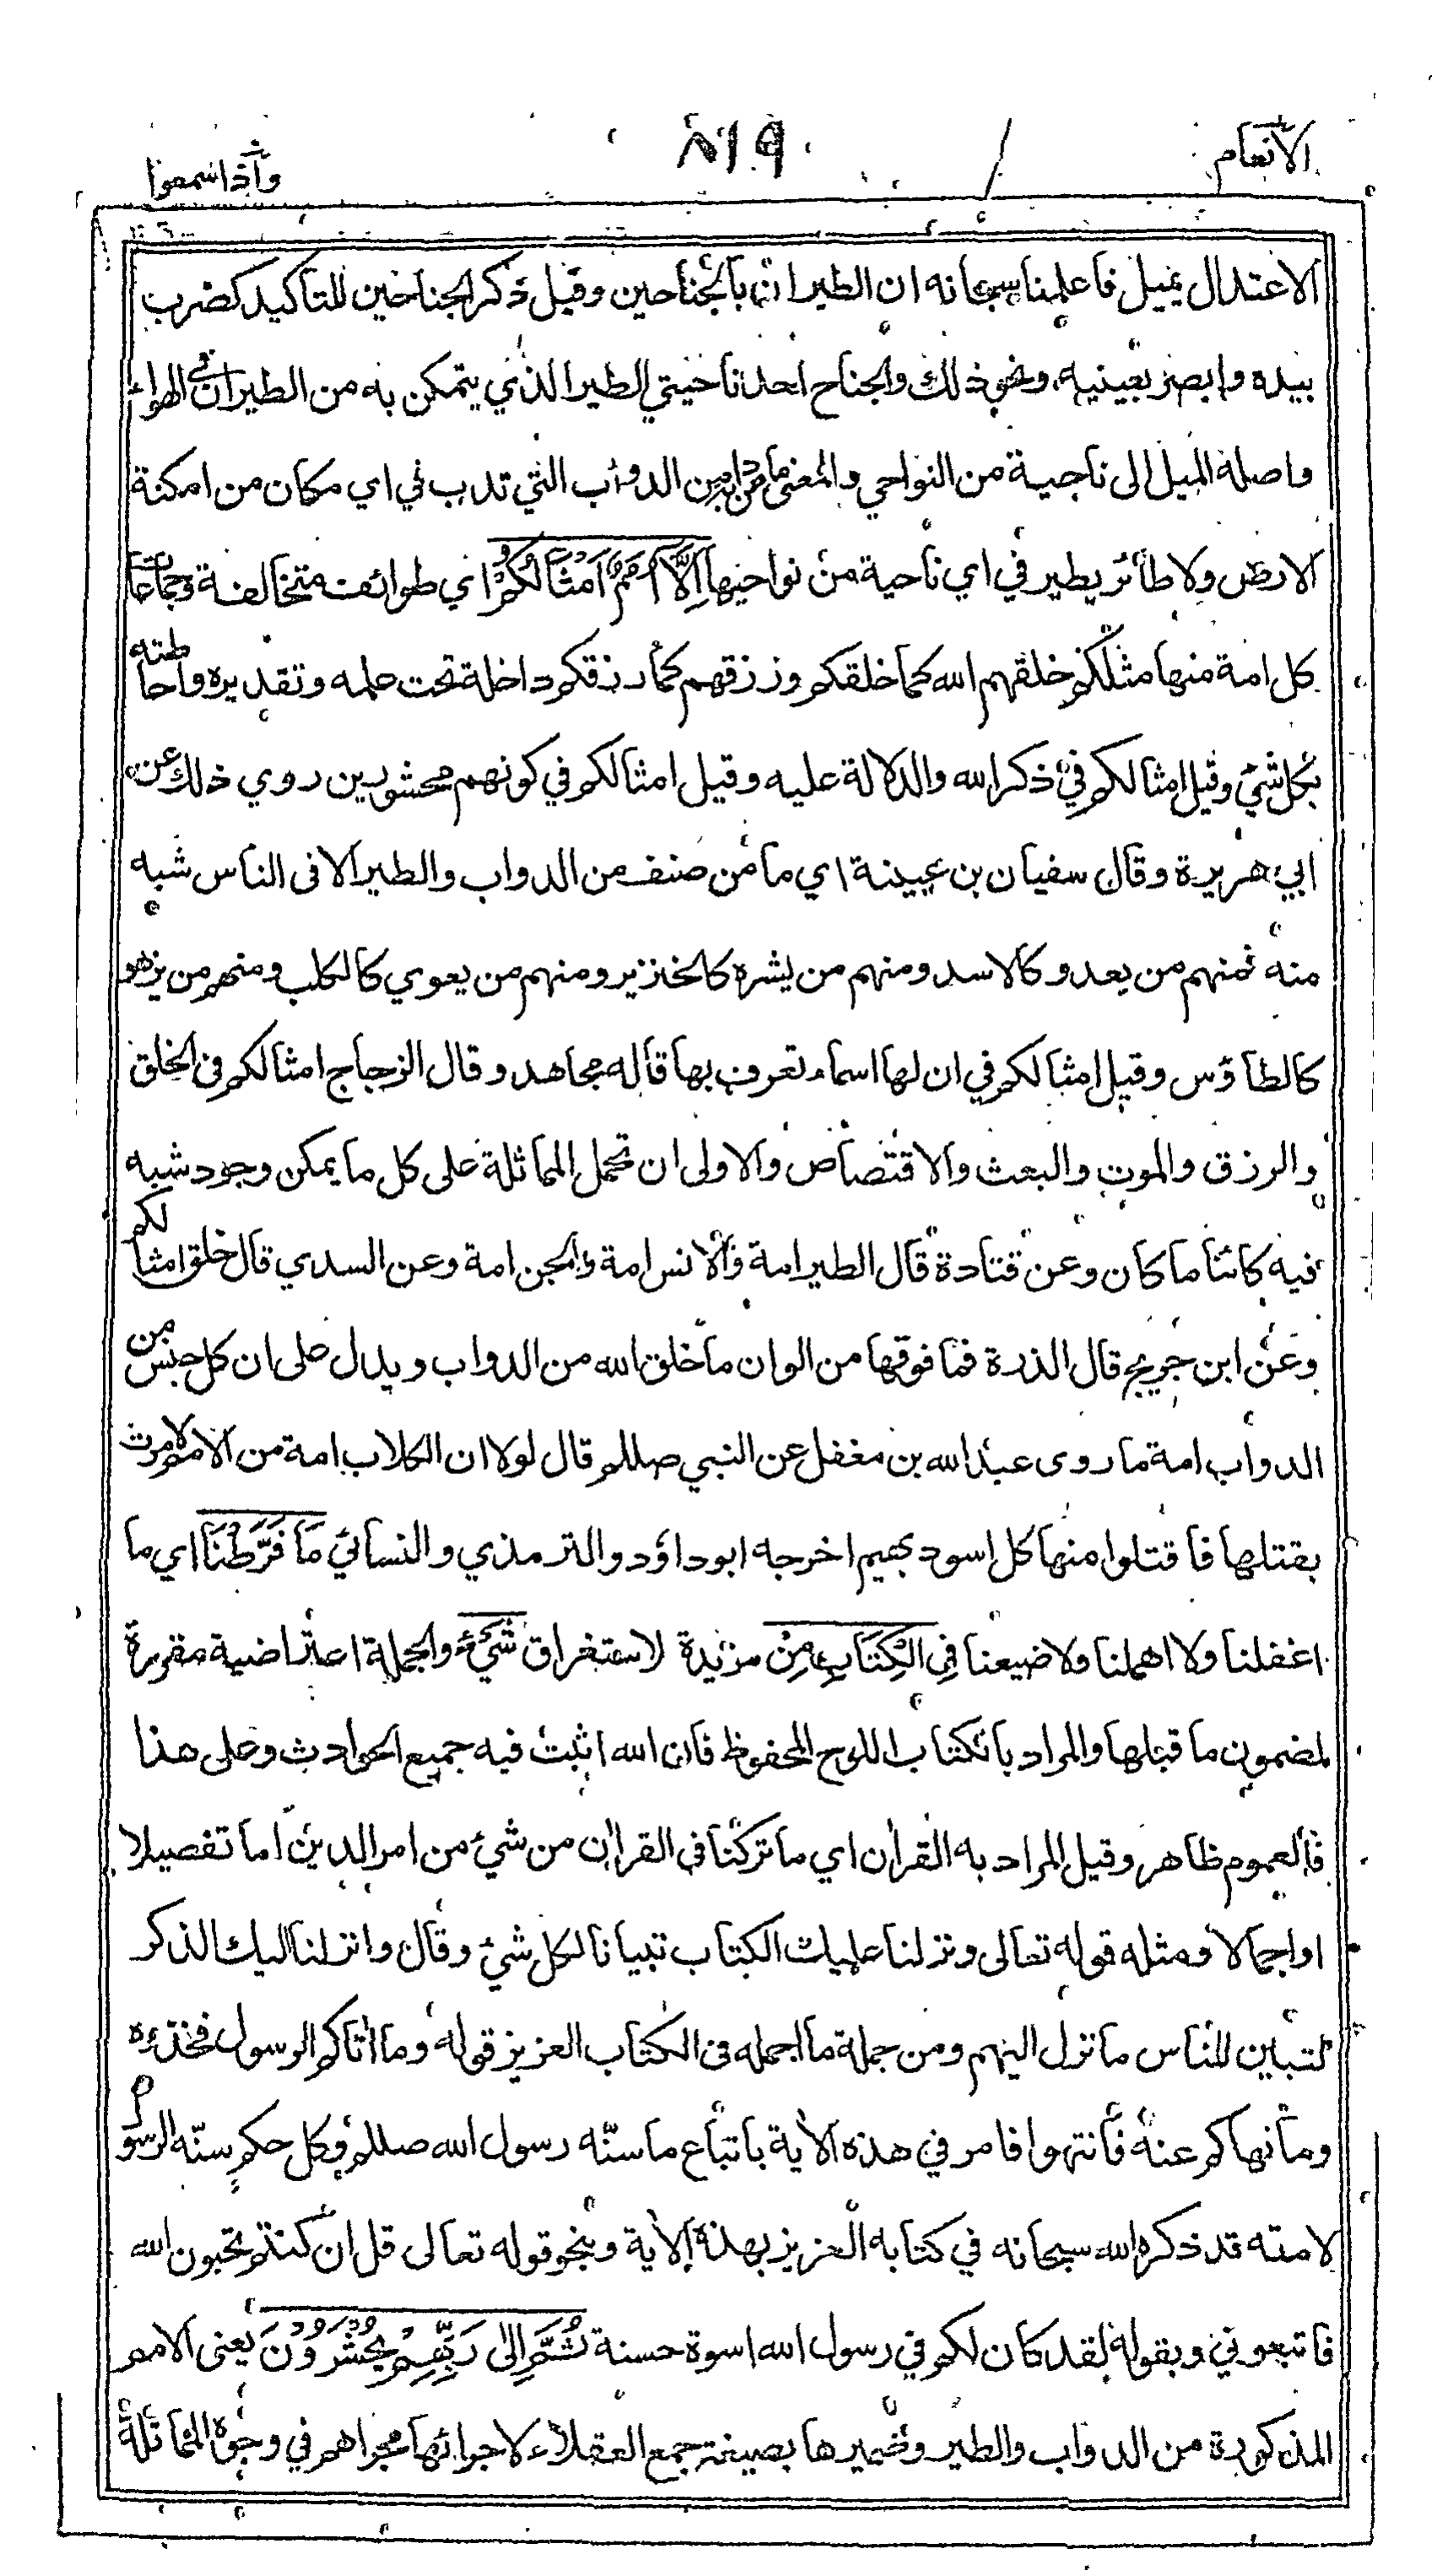 الانعام
٨١٩
واذا سمعوا
الاعتدال يميل فاعلمنا سبحانه ان الطيران بالجناحين وقيل ذكر الجناحين للتاكيد كضرب
بيده وابصر بعينيه ونحو ذلك والجناح احد ناحيتي الطير الذي يتمكن به من الطيران في الهواء
واصله الميل الى ناحية من النواحي والمعنى ما من دابة من الدواب التي تدب في اي مكان من امكنة
الارض ولا طائر يطير في اي ناحية من نواحيها اِلَّا اُمَمٌ اَمْثَالُكُمْ اي طوائف متخالفة وجماعات
كل امة منها مثلكم خلقهم الله كما خلقكم ورزقهم كما رزقكم داخلة تحت علمه وتقديره واحاطته
بكل شيء وقيل امثالكم في ذكر الله والدلالة عليه وقيل امثالكم في كونهم محشورين روي ذلك عن
ابي هريرة وقال سفيان بن عيينة اي ما من صنف من الدواب والطير الا فى الناس شبه
منه فمنهم من يعدو كالاسد ومنهم من يشره كالخنزير ومنهم من يعوي كالكلب ومنهم من يزهو
كالطاؤس وقيل امثالكم في ان لها اسماء تعرف بها قاله مجاهد وقال الزجاج امثالكم فى الخلق
والرزق والموت والبعث والاقتصاص والاولى ان تحمل المماثلة على كل ما يمكن وجود شبه
فيه كائنا ما كان وعن قتادة قال الطير امة والانس امة والجن امة وعن السدي قال خلق امثالكم
وعن ابن جريج قال الذرة فما فوقها من الوان ما خلق الله من الدواب ويدل على ان كل جنس من
الدواب امة ما روى عبد الله بن مغفل عن النبي صللم قال لولا ان الكلاب امة من الامم لامرت
بقتلها فاقتلوا منها كل اسود بهيم اخرجه ابوداؤد والترمذي والنسائي مَا فَرَّطْنَا اي ما
اغفلنا ولا اهملنا ولا ضيعنا فِي الْكِتَابِ مِنْ مزيدة لاستغراق شَيْءٍ والجملة اعتراضية مقررة
لمضمون ما قبلها والمراد بالكتاب اللوح المحفوظ فان الله اثبت فيه جميع الحوادث وعلى هذا
فالعموم ظاهر وقيل المراد به القران اي ما تركنا فى القران من شيء من امر الدين اما تفصيلا
او اجمالا ومثله قوله تعالى ونزلنا عليك الكتاب تبيانا لكل شيء وقال وانزلنا اليك الذكر
لتبين للناس ما نزل اليهم ومن جملة ما اجمله فى الكتاب العزيز قوله وما اتاكم الرسول فخذوه
وما نهاكم عنه فانتهوا فامر في هذه الاية باتباع ما سنّه رسول الله صللم فكل حكم سنّه الرسول
لامته قد ذكره الله سبحانه في كتابه العزيز بهذه الاية وبنحو قوله تعالى قل ان كنتم تحبون الله
فاتبعوني وبقوله لقد كان لكم في رسول الله اسوة حسنة ثُمَّ اِلٰى رَبِّهِمْ يُحْشَرُوْنَ يعنى الامم
المذكورة من الدواب والطير وضميرها بصيغة جمع العقلاء لاجرائها مجراهم في وجوه المماثلة